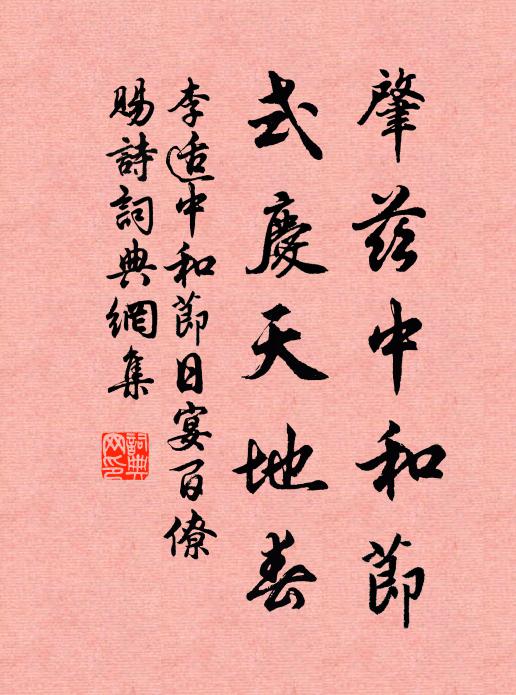 肇茲中和節
式慶天地春
李适中和節日宴百僚
賜詩詞典網集
詞典
网印